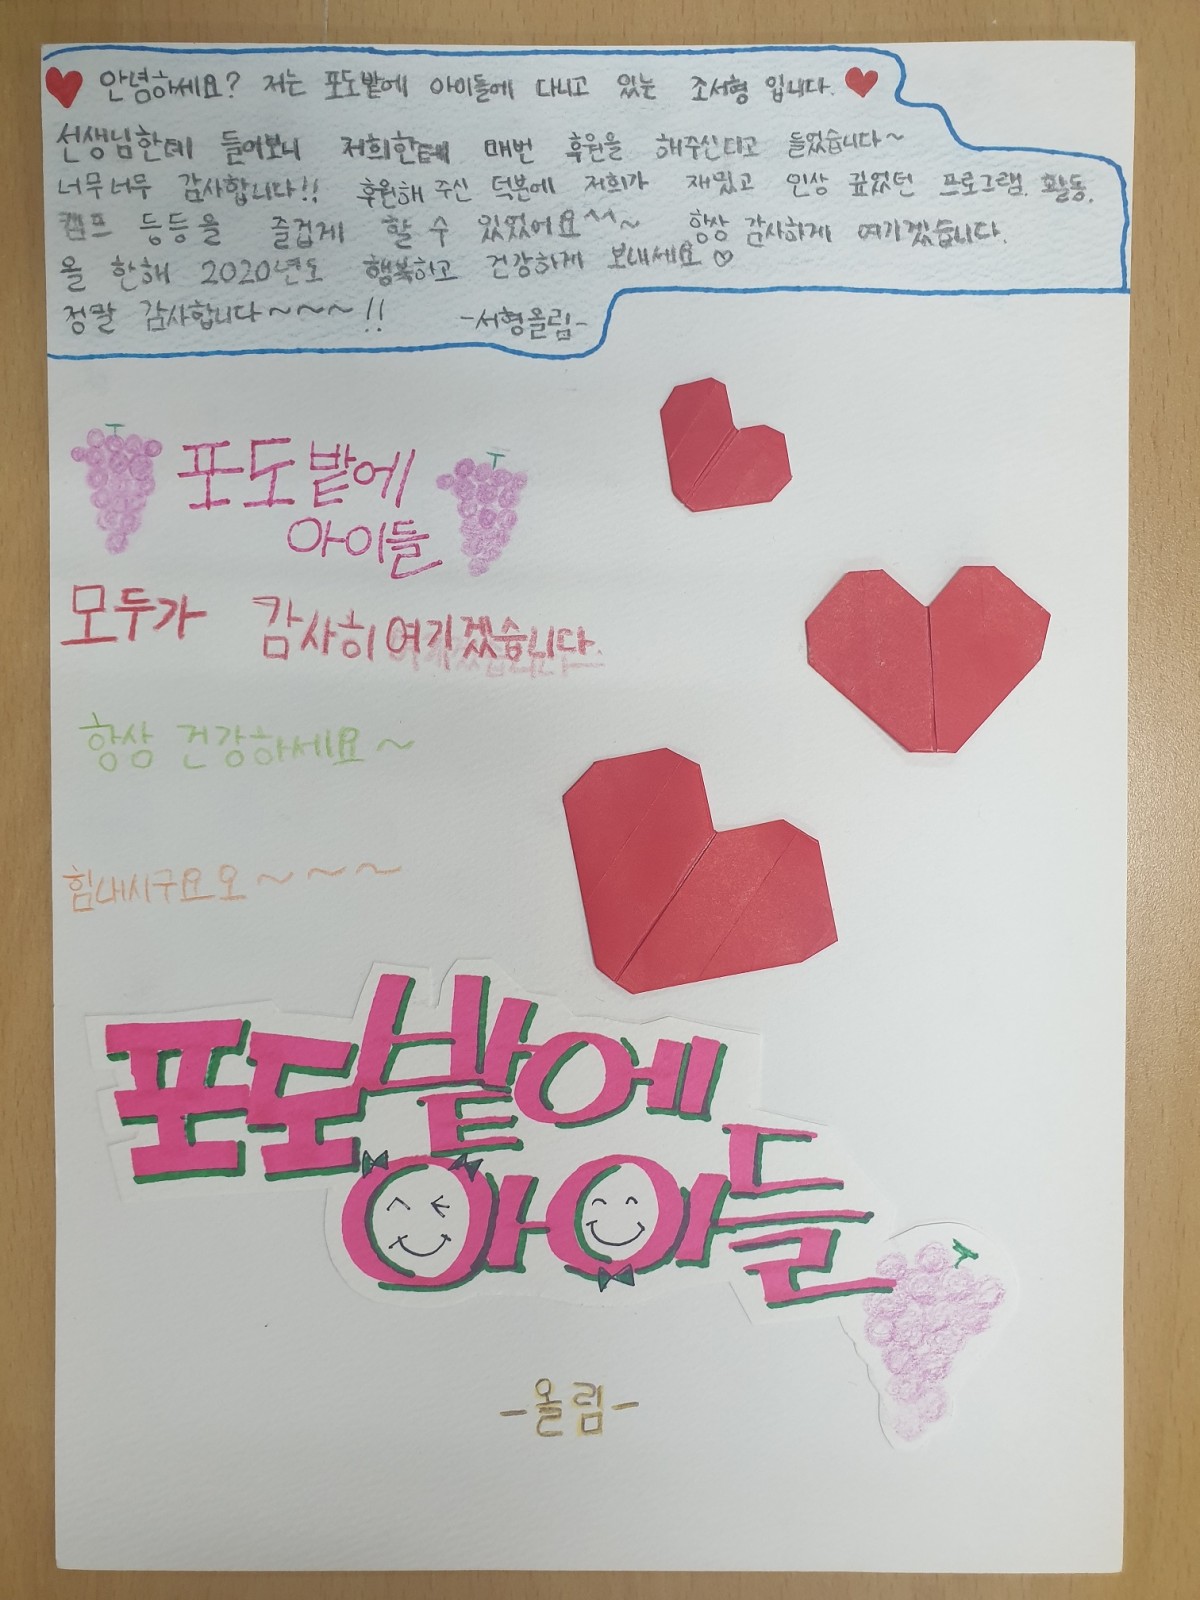 안녕하세요? 저는 포도밭에 아이들에 다니고 있는 조서형 입니다.
선생님한테 들어보니 저희한테 매번 후원을 해주신다고 들었습니다~
너무너무 감사합니다!! 후원해 주신 덕분에 저희가 재밌고 인상 깊었던 프로그램, 활동,
캠프 등등을 즐겁게 할 수 있었어요^^~ 항상 감사하게 여기겠습니다.
올 한해 2020년도 행복하고 건강하게 보내세요♡
정말 감사합니다~~~!! -서형올림-
포도밭에
아이들
모두가 감사히 여기겠습니다.
항상 건강하세요~
힘내시구요오~~~
포도밭에
아이들
-올림-